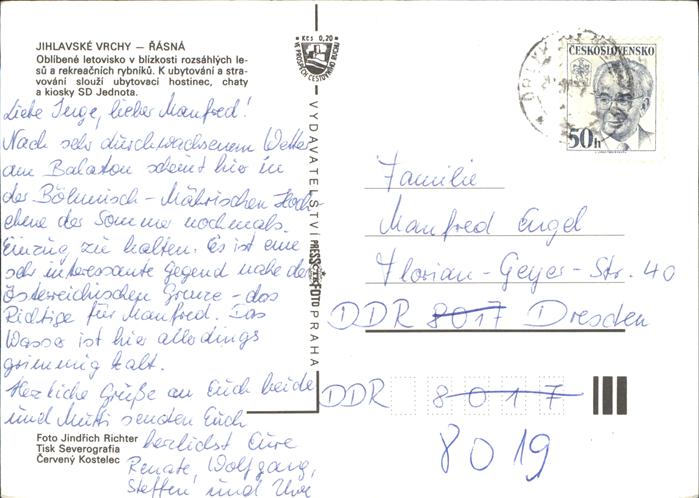 JIHLAVSKÉ VRCHY — ŘÁSNÁ
Oblíbené letovisko v blízkosti rozsáhlých le-
sů a rekreačních rybníků. K ubytování a stra-
vování slouží ubytovací hostinec, chaty
a kiosky SD Jednota.
Liebe Inge, lieber Manfred!
Nach sehr durchwachsenem Wetter
am Balaton scheint hier in
der Böhmisch-Mährischen Hoch
ebene der Sommer nochmals
Einzug zu halten. Es ist eine
sehr interessante Gegend nahe der
Österreichischen Grenze - das
Richtige für Manfred. Das
Wasser ist hier allerdings
grimmig kalt.
Herzliche Grüße an Euch beide
und Mutti senden Euch
herzlichst Eure
Renate, Wolfgang,
Steffen und Uwe
Foto Jindřich Richter
Tisk Severografia
Červený Kostelec
Kčs 0,20
VE PROSPĚCH CESTOVNÍHO RUCHU
VYDAVATELSTVÍ PRESSFOTO PRAHA
ČESKOSLOVENSKO
50h
Familie
Manfred Engel
Florian-Geyer-Str. 40
DDR 8017 Dresden
DDR 8017
8019